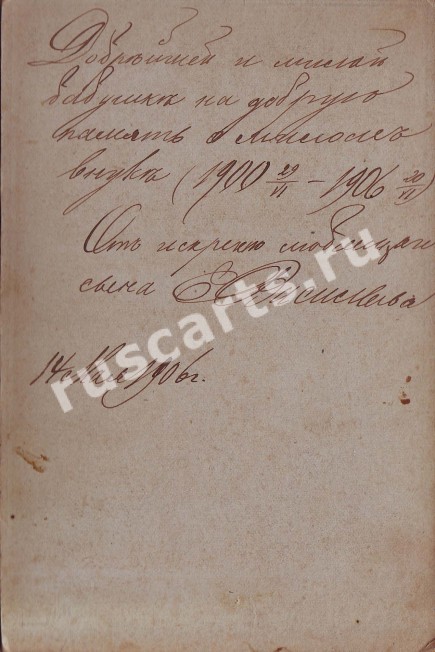 Добрѣйшей и милой
бабушкѣ на добрую
память о миломъ
внукѣ (1900 29/II – 1906 20/II)
Отъ искренно любящаго
сына
14 Мая 1906 г.
ruscarts.ru